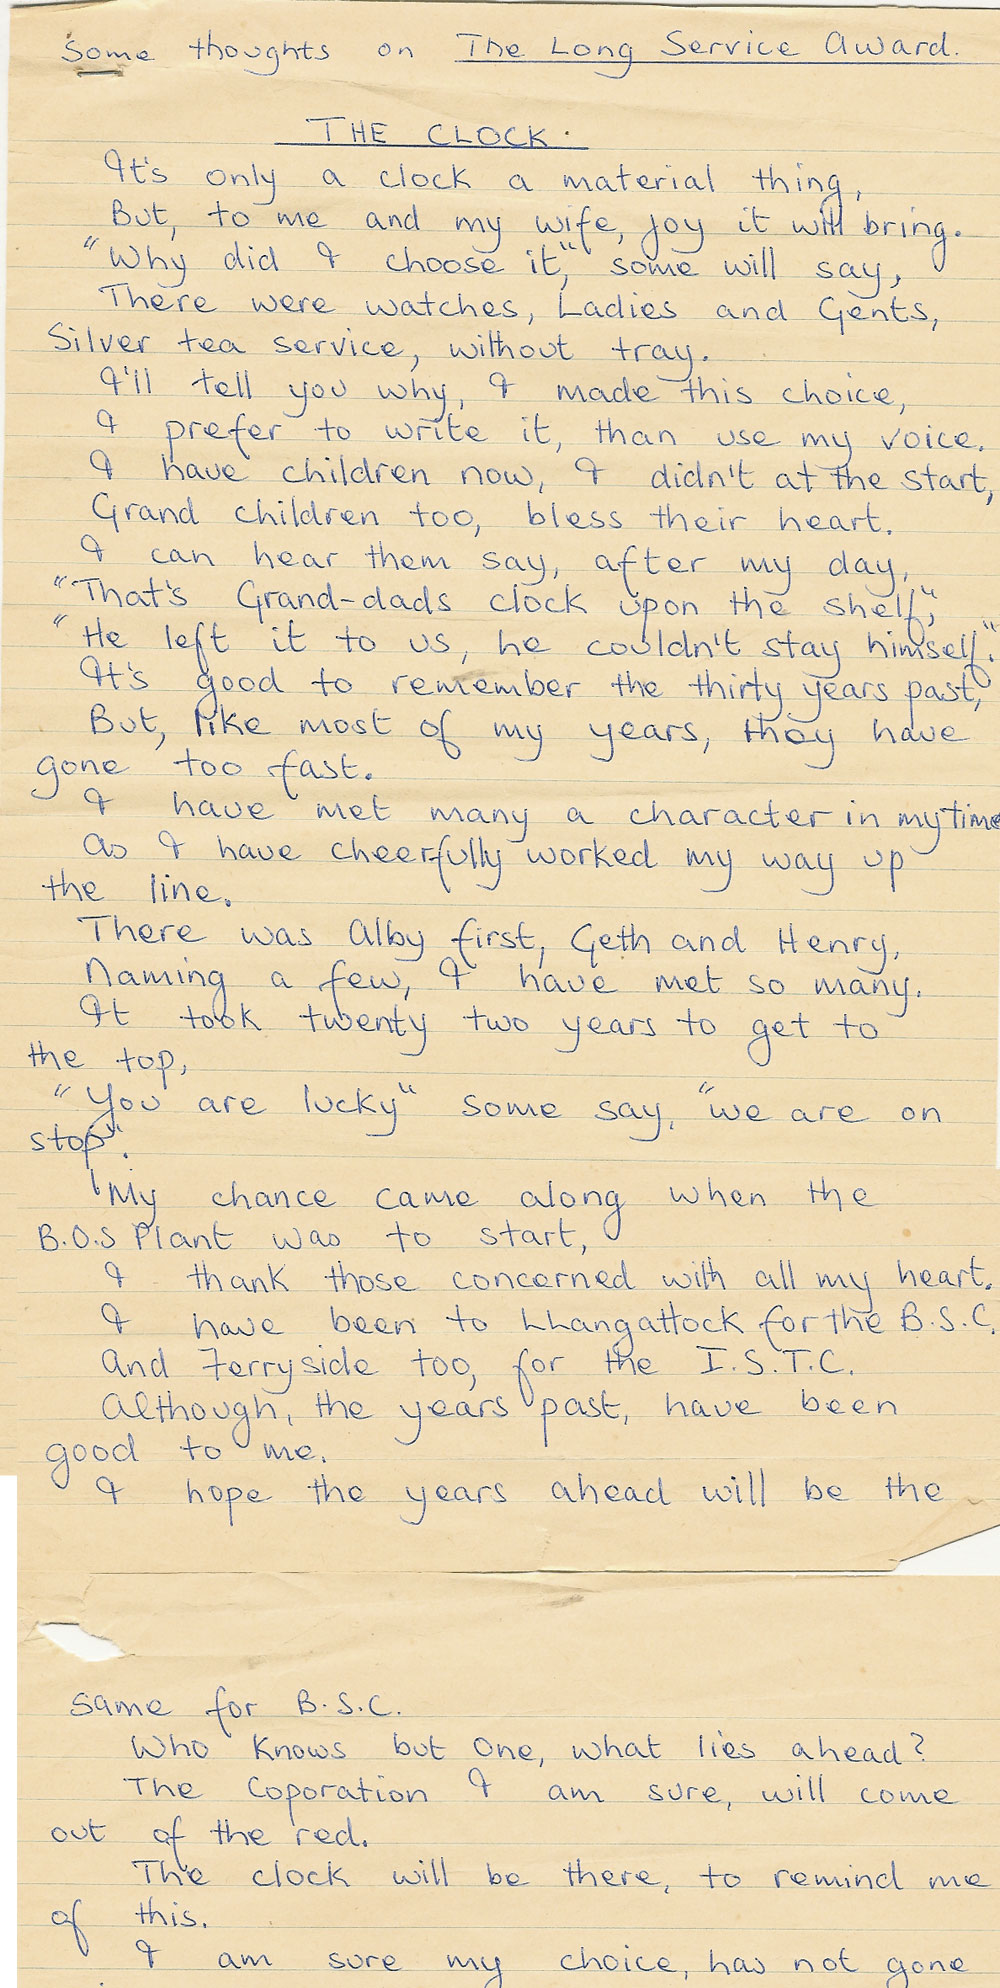 Some thoughts on The Long Service Award.
THE CLOCK.
It's only a clock a material thing,
But, to me and my wife, joy it will bring.
"Why did I choose it," some will say,
There were watches, Ladies and Gents,
Silver tea service, without tray.
I'll tell you why, I made this choice,
I prefer to write it, than use my voice.
I have children now, I didn't at the start,
Grand children too, bless their heart.
I can hear them say, after my day,
"That's Grand-dads clock upon the shelf,"
"He left it to us, he couldn't stay himself."
It's good to remember the thirty years past,
But, like most of my years, they have
gone too fast.
I have met many a character in my time
As I have cheerfully worked my way up
the line.
There was Alby first, Geth and Henry,
Naming a few, I have met so many.
It took twenty two years to get to
the top,
"You are lucky" some say, "we are on
stop".
My chance came along when the
B.O.S Plant was to start,
I thank those concerned with all my heart.
I have been to LLangattock for the B.S.C.
And Ferryside too, for the I.S.T.C.
Although, the years past, have been
good to me.
I hope the years ahead will be the
same for B.S.C.
Who knows but One, what lies ahead?
The Coporation I am sure, will come
out of the red.
The clock will be there, to remind me
of this.
I am sure my choice, has not gone